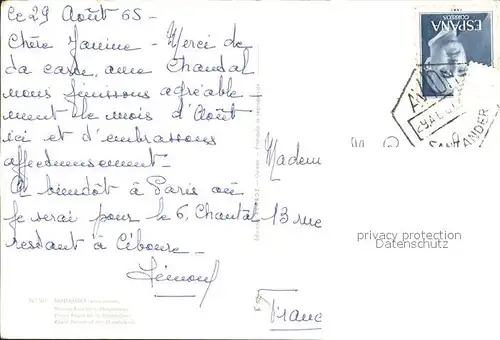 Le 29 Août 65 -
Chère Janine - Merci de
ta carte, avec Chantal
nous finissons agréable-
ment le mois d'Août
ici et t'embrassons
affectueusement -
A bientôt à Paris où
je serai pour le 6, Chantal
restant à Ciboure -
Madem
13 rue
Franc
ESPAÑA
CORREOS
AVION
SANTANDER
privacy protection
Datenschutz